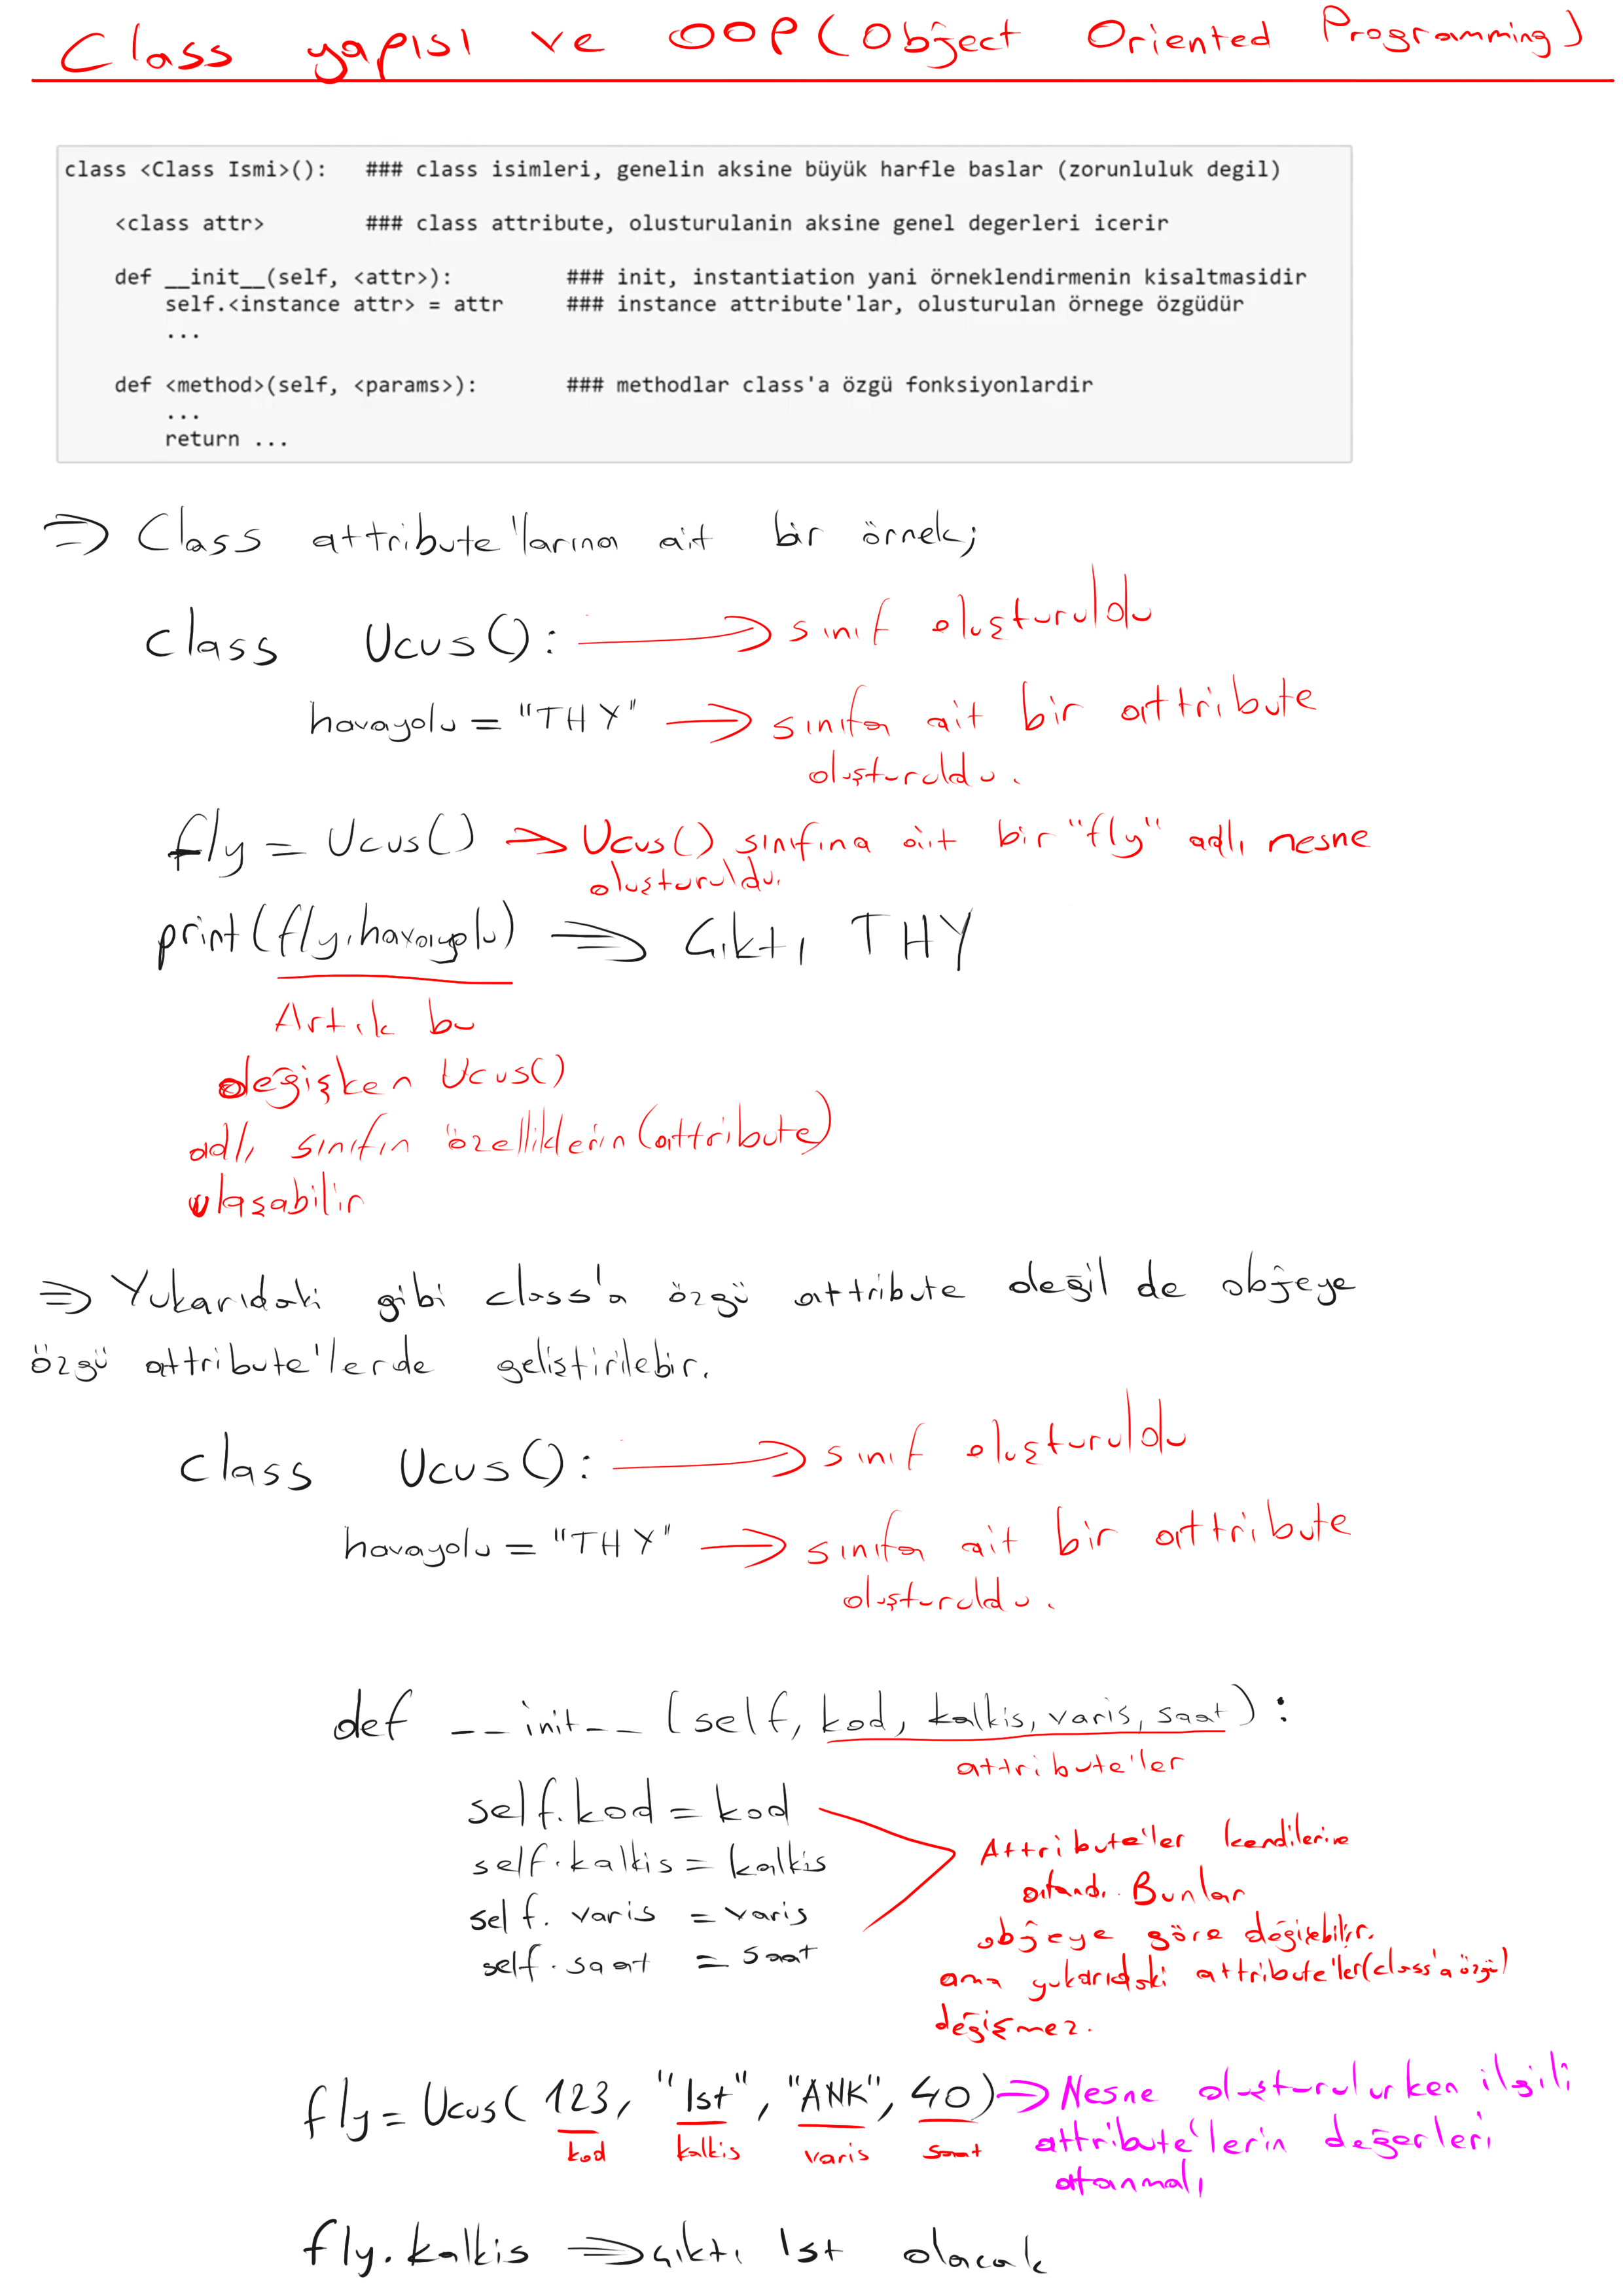 Class yapısı ve OOP (Object Oriented Programming)
class <Class Ismi>():   ### class isimleri, genelin aksine büyük harfle baslar (zorunluluk degil)
<class attr>   ### class attribute, olusturulanin aksine genel degerleri icerir
def __init__(self, <attr>):   ### init, instantiation yani örneklendirmenin kisaltmasidir
self.<instance attr> = attr   ### instance attribute'lar, olusturulan örnege özgüdür
...
def <method>(self, <params>):   ### methodlar class'a özgü fonksiyonlardir
...
return ...
⇒ Class attribute'larına ait bir örnek;
class Ucus(): → sınıf oluşturuldu
havayolu = "THY" → sınıfa ait bir attribute
oluşturuldu.
fly = Ucus() → Ucus() sınıfına ait bir "fly" adlı nesne
oluşturuldu.
print(fly.havayolu) ⇒ Çıktı THY
Artık bu
değişken Ucus()
adlı sınıfın özelliklerin (attribute)
ulaşabilir
⇒ Yukarıdaki gibi class'a özgü attribute değil de objeye
özgü attribute'lerde geliştirilebir.
class Ucus(): → sınıf oluşturuldu
havayolu = "THY" → sınıfa ait bir attribute
oluşturuldu.
def __init__ (self, kod, kalkis, varis, saat):
attribute'ler
self.kod = kod
self.kalkis = kalkis
self.varis = varis
self.saat = saat
Attribute'ler kendilerine
atandı. Bunlar
objeye göre değişebilir.
ama yukarıdaki attribute'ler (class'a özgü)
değişmez.
fly = Ucus( 123, "Ist", "ANK", 40) → Nesne oluşturulurken ilgili
kod kalkis varis saat attribute'lerin değerleri
atanmalı
fly.kalkis ⇒ çıktı Ist olacak